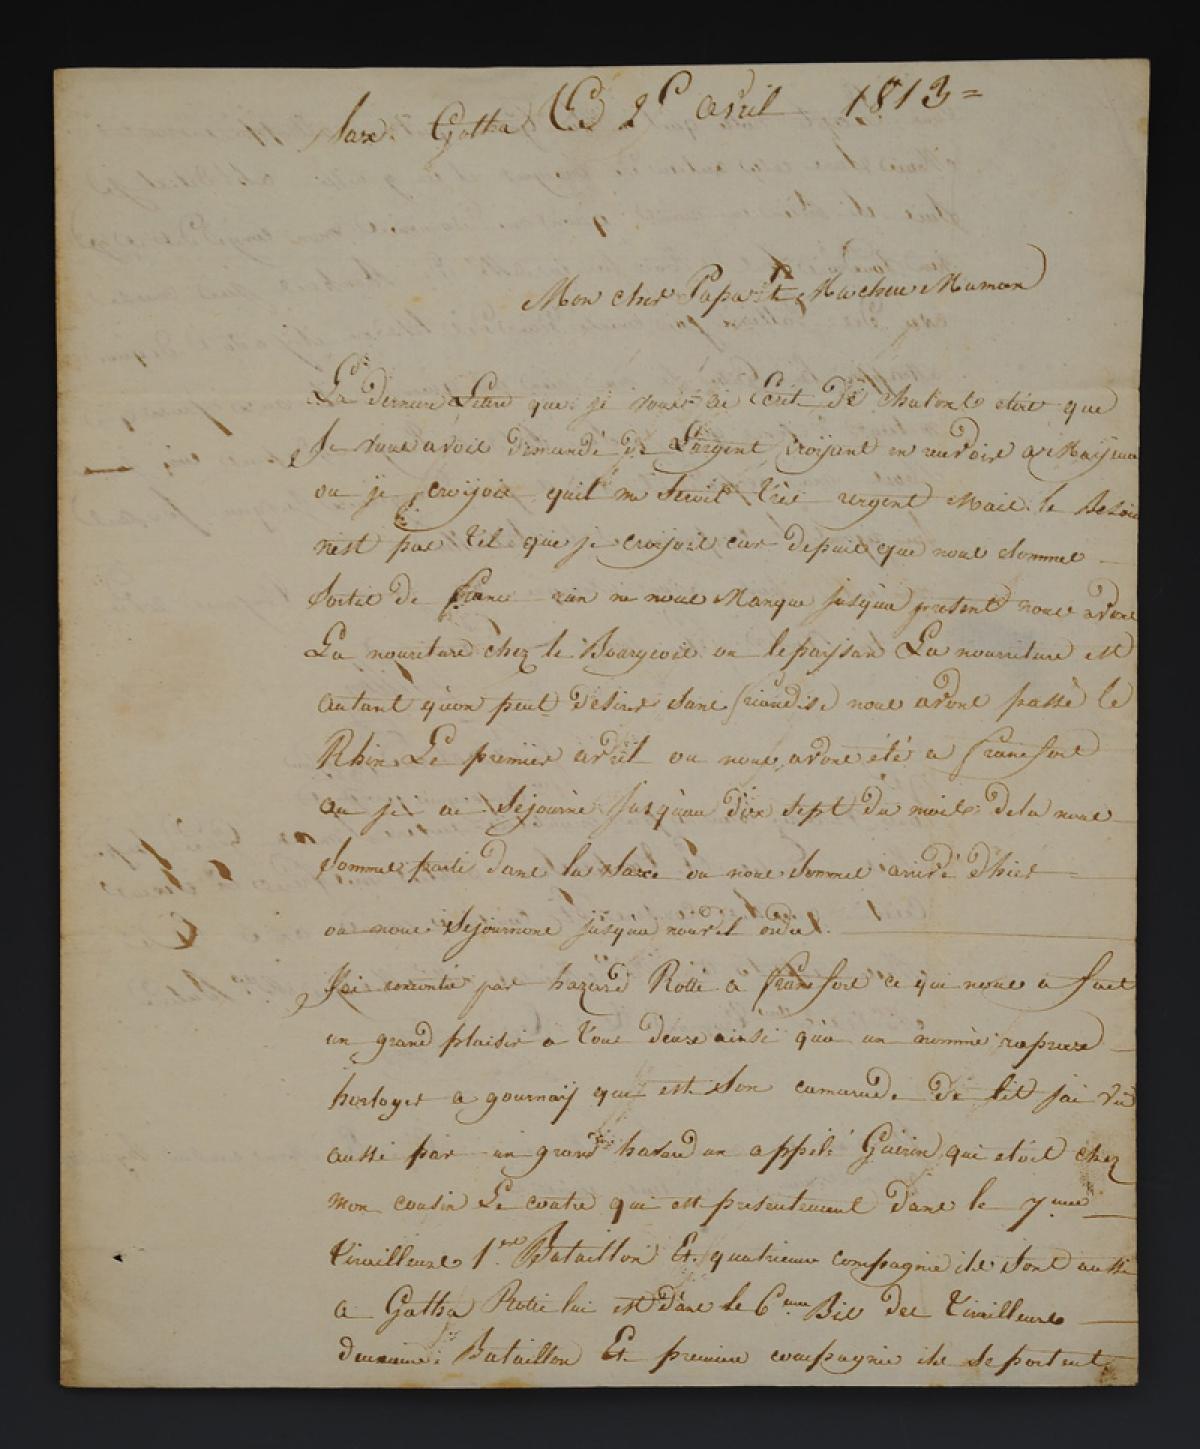 Saxe Gotha Le 2 avril 1813 =
Mon cher Papa Et Ma chere Maman
La derniere Lettre que je vous ai Ecrit De chalons etoit que
Je vous avois demandé de L'argent croÿant en recevoir a Maÿence
ou je croÿois quil me seroit très urgent Mais le Besoin
n'est pas tel que je croÿois car depuis que nous sommes
sortis de france rien ne nous Manque jusqu'au present nous avons
La nouriture chez le Bourgeois ou le paÿsan La nourriture est
autant qu'on peut desirer sans friandise nous avons passé le
Rhin Le premier avril ou nous avons été a francfort
ou je ai séjourné jusqu'au dix sept du mois dela nous
sommes parti dans la Saxe ou nous sommes arrivé d'hier
ou nous séjournons jusqu'au nouvel ordre.
J'ai rencontré par hazard Rotté a francfort ce qui nous a fait
un grand plaisir a tous deux ainsi qu'a un nommé
horloger a gournaÿ qui est son camarade de lit j'ai vu
aussi par un grand hazard un appelé Guerin qui etoit chez
mon cousin Le contre qui est presentement dans le 7eme
tirailleurs 1er Bataillon Et quatrieme compagnie ils sont aussi
a Gotha Rotté lui est dans le 6eme des tirailleurs
deuxieme Bataillon Et premiere compagnie ils se portent